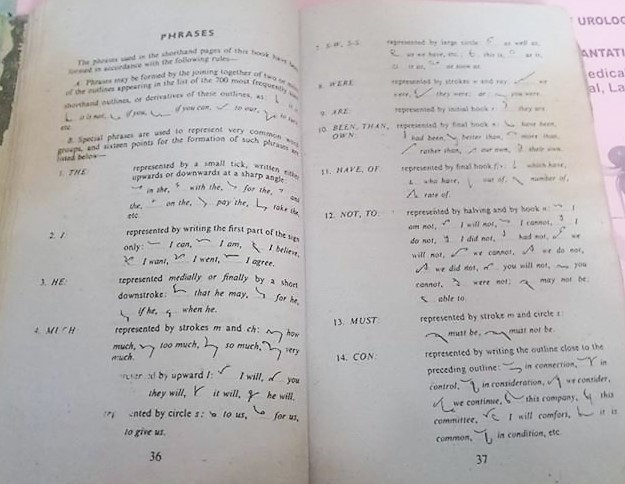 PHRASES
The phrases used in the shorthand pages of this book have been
formed in accordance with the following rules—
A. Phrases may be formed by the joining together of two or more
of the outlines appearing in the list of the 700 most frequently used
shorthand outlines, or derivatives of these outlines, as: it is,
it is not, if you, if you can, to our, to have
etc.
B. Special phrases are used to represent very common word
groups, and sixteen points for the formation of such phrases are
listed below—
1. THE: represented by a small tick, written either
upwards or downwards at a sharp angle:
in the, with the, for the, and
the, on the, pay the, take the,
etc.
2. I: represented by writing the first part of the sign
only: I can, I am, I believe,
I want, I went, I agree.
3. HE: represented medially or finally by a short
downstroke: that he may, for he,
if he, when he.
4. MUCH represented by strokes m and ch: how
much, too much, so much, very
much.
by upward l: I will, you
they will, it will, he will.
ented by circle s: to us, for us,
to give us.
36
7. S-W, S-S: represented by large circle: as well as,
as we have, etc. this is, as is,
it as, as soon as.
8. WERE: represented by strokes w and ray: we
were, they were; or you were.
9. ARE: represented by initial hook r: they are.
10. BEEN, THAN, OWN: represented by final hook n: have been,
had been, better than, more than,
rather than, our own, their own.
11. HAVE, OF: represented by final hook f/v: which have,
who have, out of, number of,
rate of.
12. NOT, TO: represented by halving and by hook n: I
am not, I will not, I cannot, I
do not, I did not, had not, we
will not, we cannot, we do not,
we did not, you will not, you
cannot, were not; may not be;
able to.
13. MUST: represented by stroke m and circle s:
must be, must not be.
14. CON: represented by writing the outline close to the
preceding outline: in connection, in
control, in consideration, we consider,
we continue, this company, this
committee, I will comfort, it is
common, in condition, etc.
37
UROLOG
ANTATI
edica
al, La